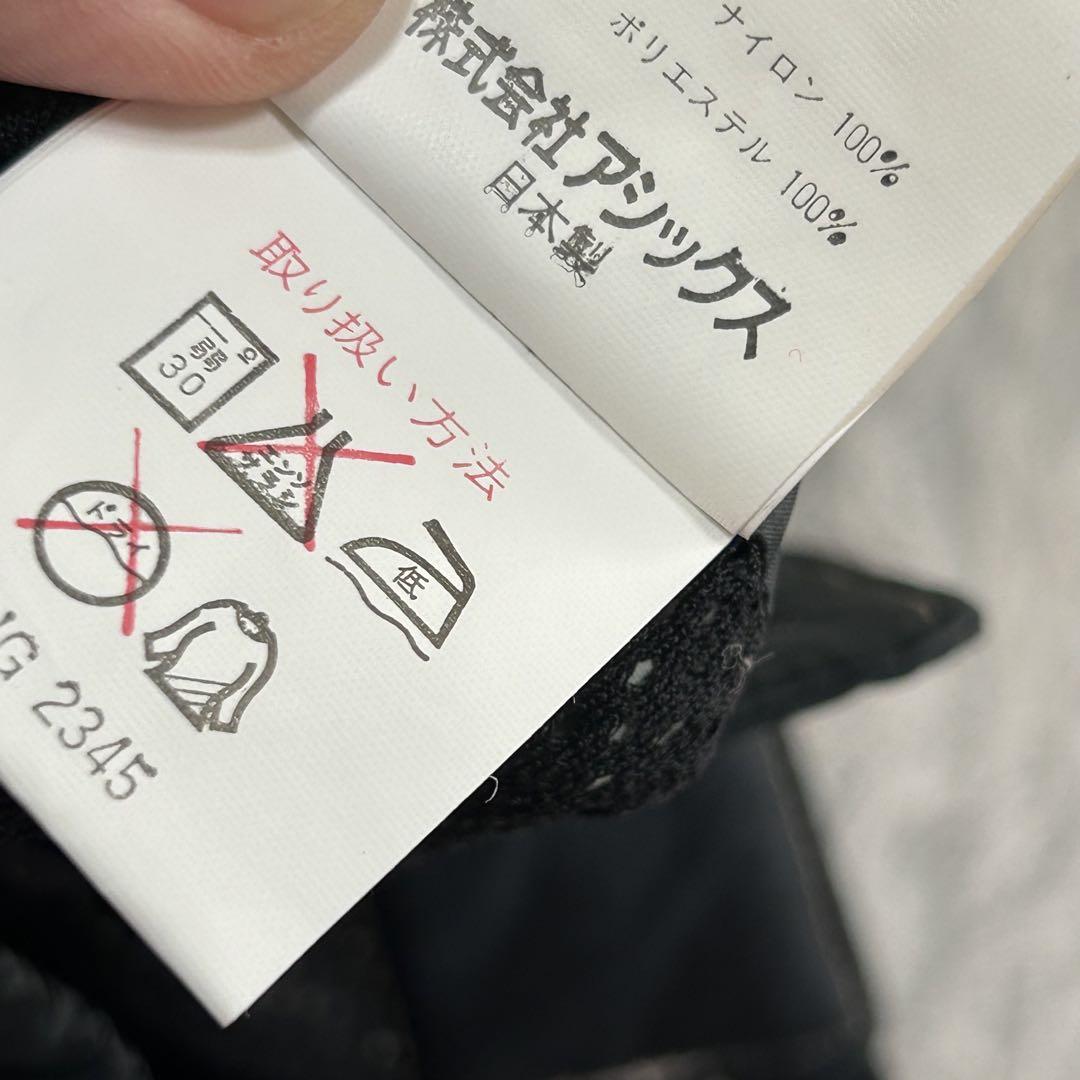 ナイロン 100%
ポリエステル 100%
株式会社アシックス
日本製
取り扱い方法
弱
30
エンソ
サラシ
低
ドライ
G 2345